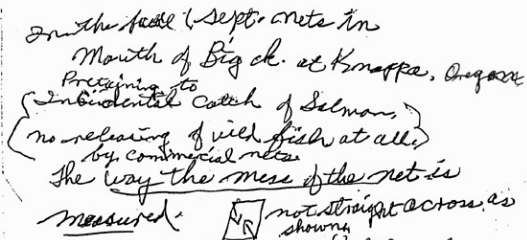 In the fall (Sept. nets in
Mouth of Big ck. at Knappa, Oregon
Pretaining to
(Incidental Catch of Salmon,
no releasing of wild fish at all.)
by commercial nets.
The way the mess of the net is
measured. not straight across as
shown